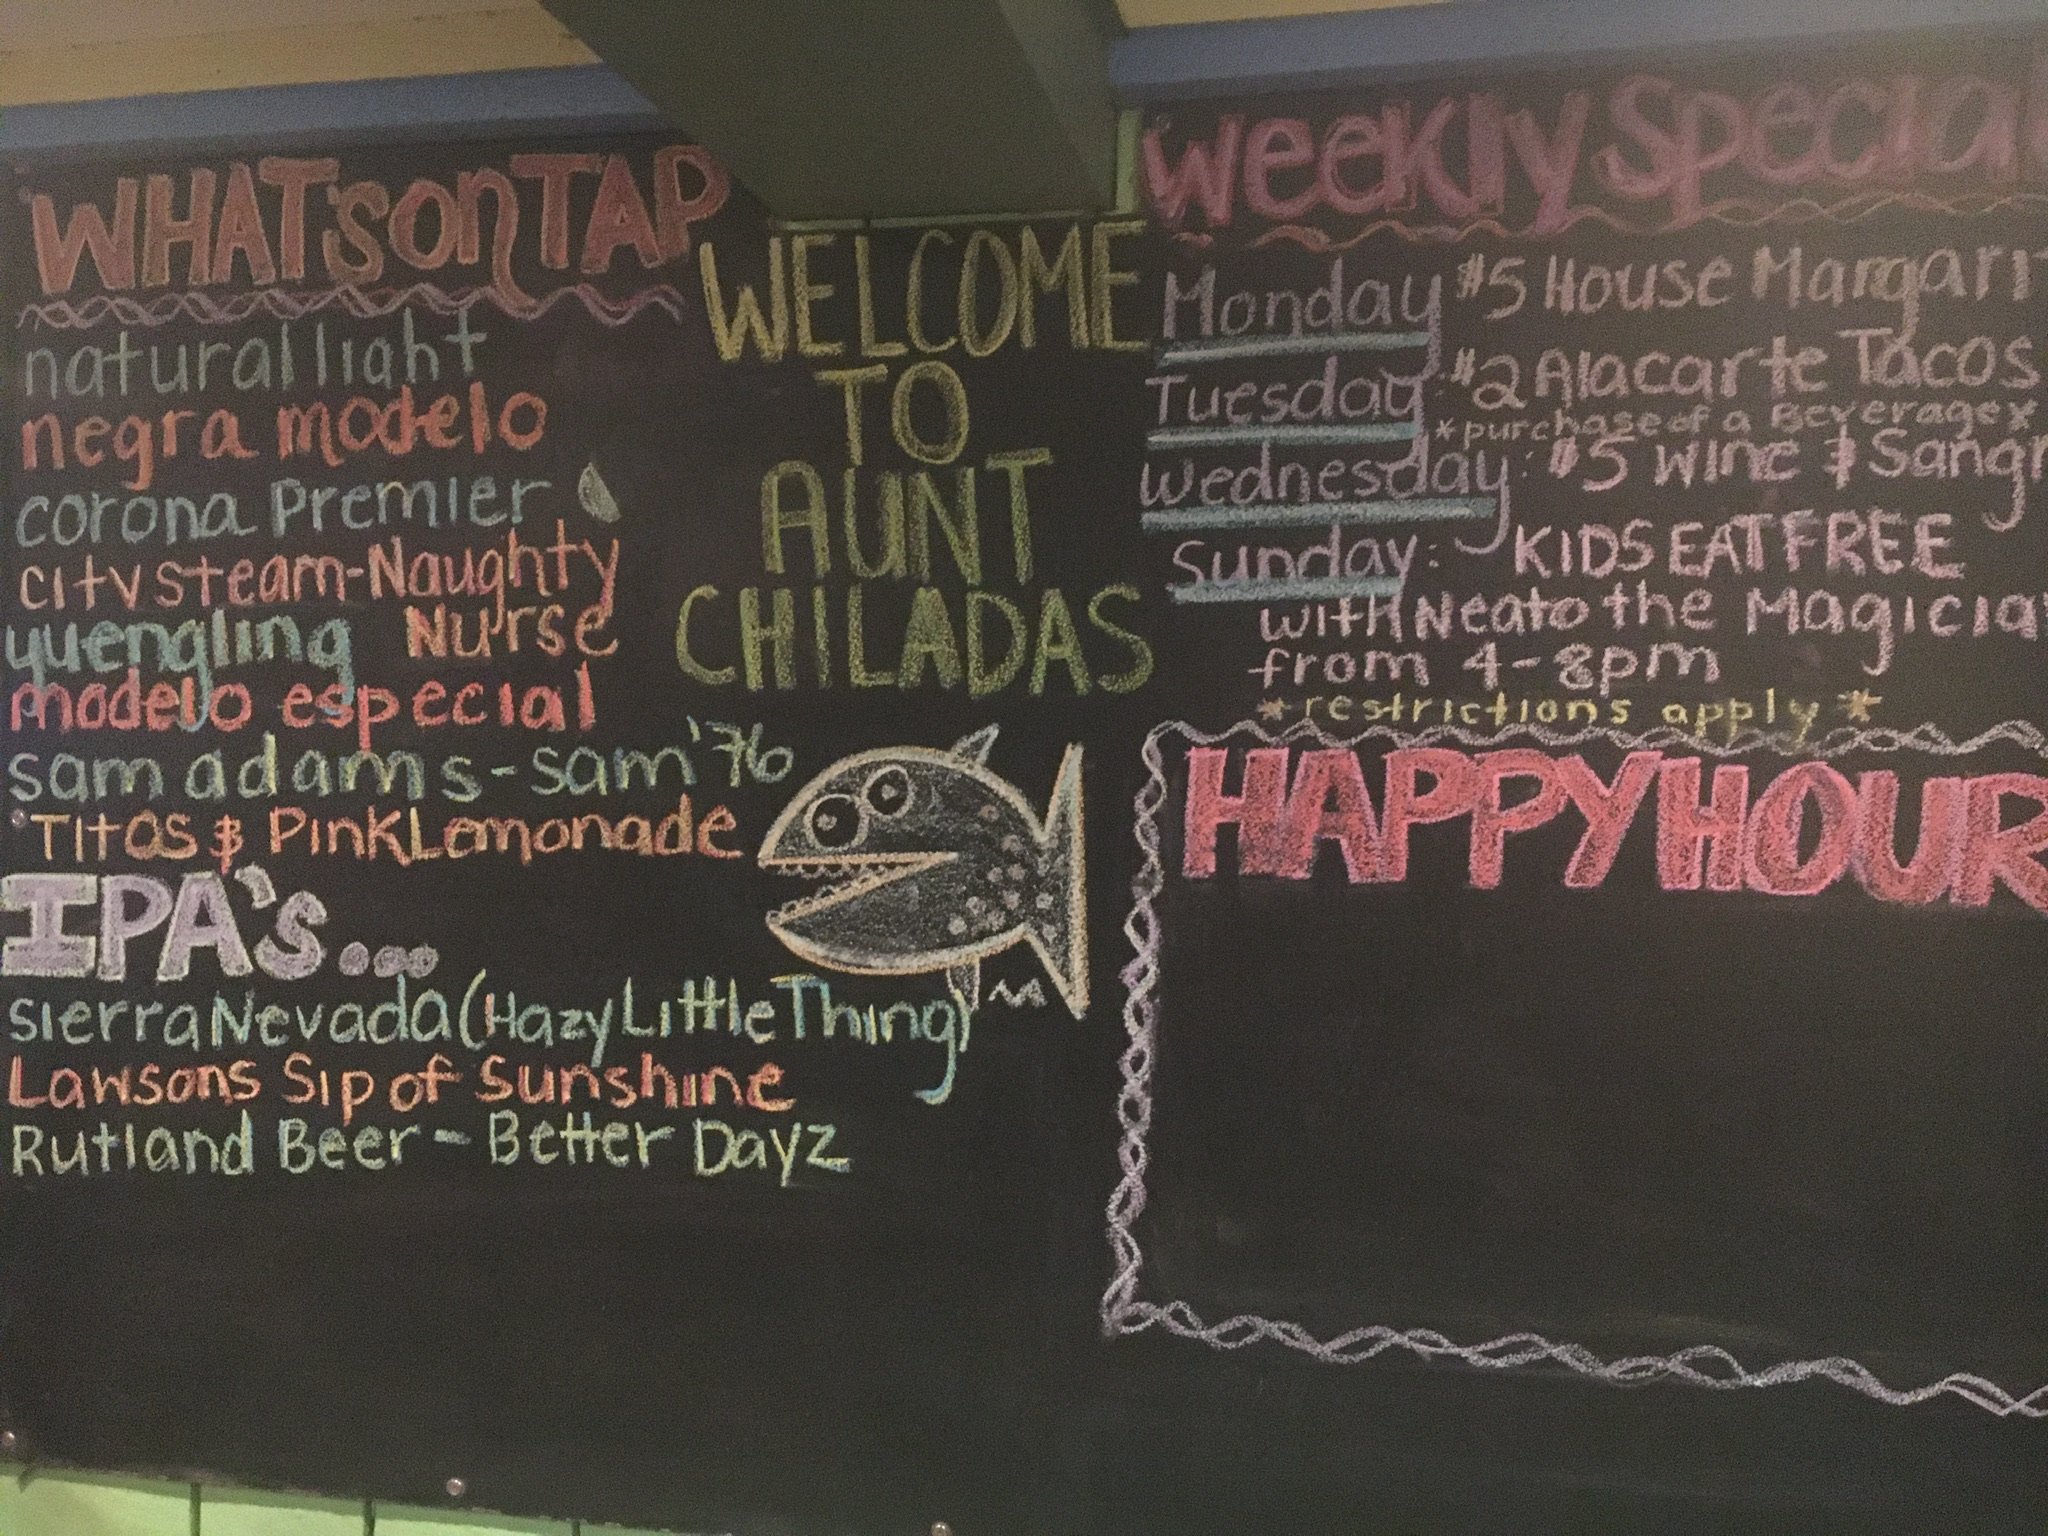 WHAT'S ON TAP
natural light
negra modelo
corona premier
city steam-Naughty
Nurse
yuengling
modelo especial
sam adams-sam '76
Titos & Pink Lemonade
IPA's...
sierra Nevada (Hazy Little Thing)
Lawsons Sip of Sunshine
Rutland Beer - Better Dayz
WELCOME
TO
AUNT
CHILADAS
Weekly Special
Monday $5 House Margari
Tuesday: $2 Alacarte Tacos
*purchase of a Beverage*
Wednesday: $5 Wine & Sangr
Sunday: KIDS EAT FREE
with Neato the Magicia
from 4-8pm
*restrictions apply*
HAPPY HOUR